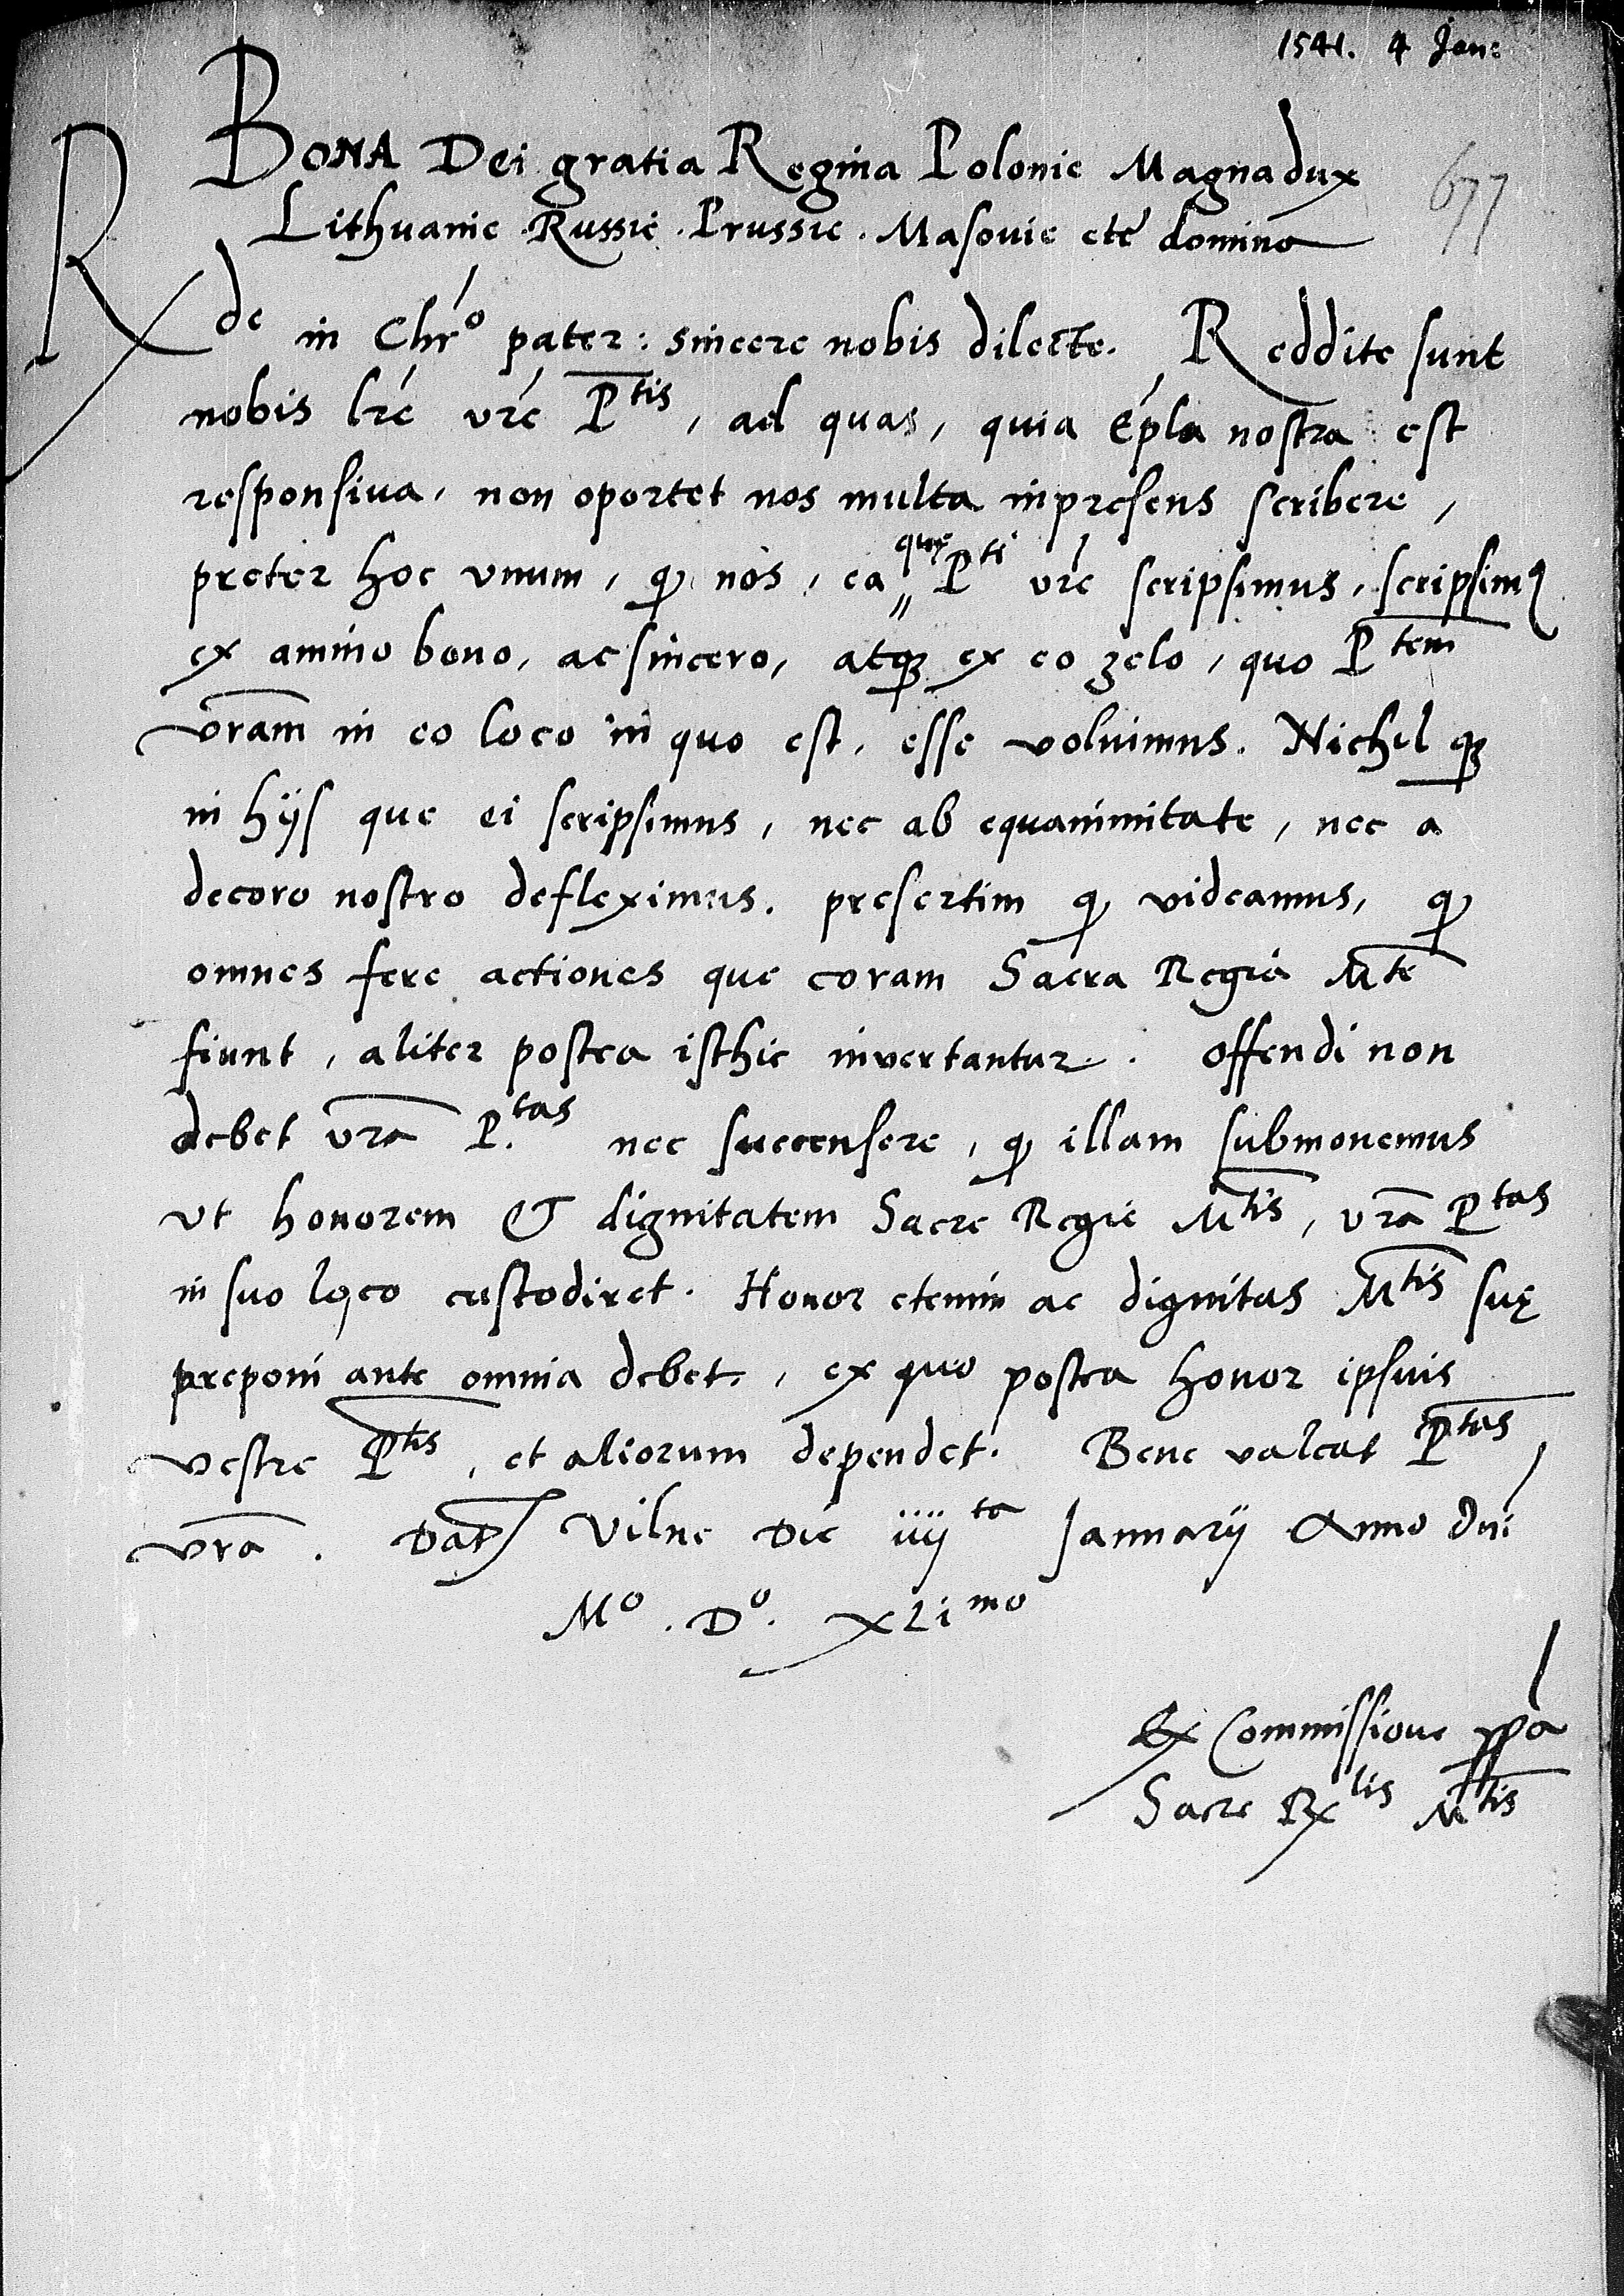 1541. 4 Jan:
677
BONA Dei gratia Regina Polonie Magnadux
Lithuanie . Russie . Prussie . Masovie etc domina
Rde in Chro pater : sincere nobis dilecte. Reddite sunt
nobis lre vre Ptis, ad quas, quia epla nostra est
responsiva, non oportet nos multa inpresens scribere,
preter hoc vnum, q nos, ea quę Pti vre scripsimus, scripsimꝰ
ex animo bono, ac sincero, atq ex eo zelo, quo Ptem
vram in eo loco in quo est, esse voluimus. Nichil q
in hijs que ei scripsimus, nec ab equanimitate, nec a
decoro nostro defleximus. presertim q videamus, q
omnes fere actiones que coram Sacra Regia Mte
fiunt, aliter postea isthic invertantur. Offendi non
debet vra P.tas nec succensere, q illam submonemus
vt honorem & dignitatem Sacre Regie Mtis, vra Ptas
in suo loco custodiret. Honor etenim ac dignitas Mtis suę
preponi ante omnia debet, ex quo postea honor ipsius
vestre Ptis, et aliorum dependet. Bene valeat Ptas
vra. Dat Vilne Die iiijta Januarij Anno dni
Mo. Do. XLimo
Ex Commissione ppa
Sacre Rxlis Mtis